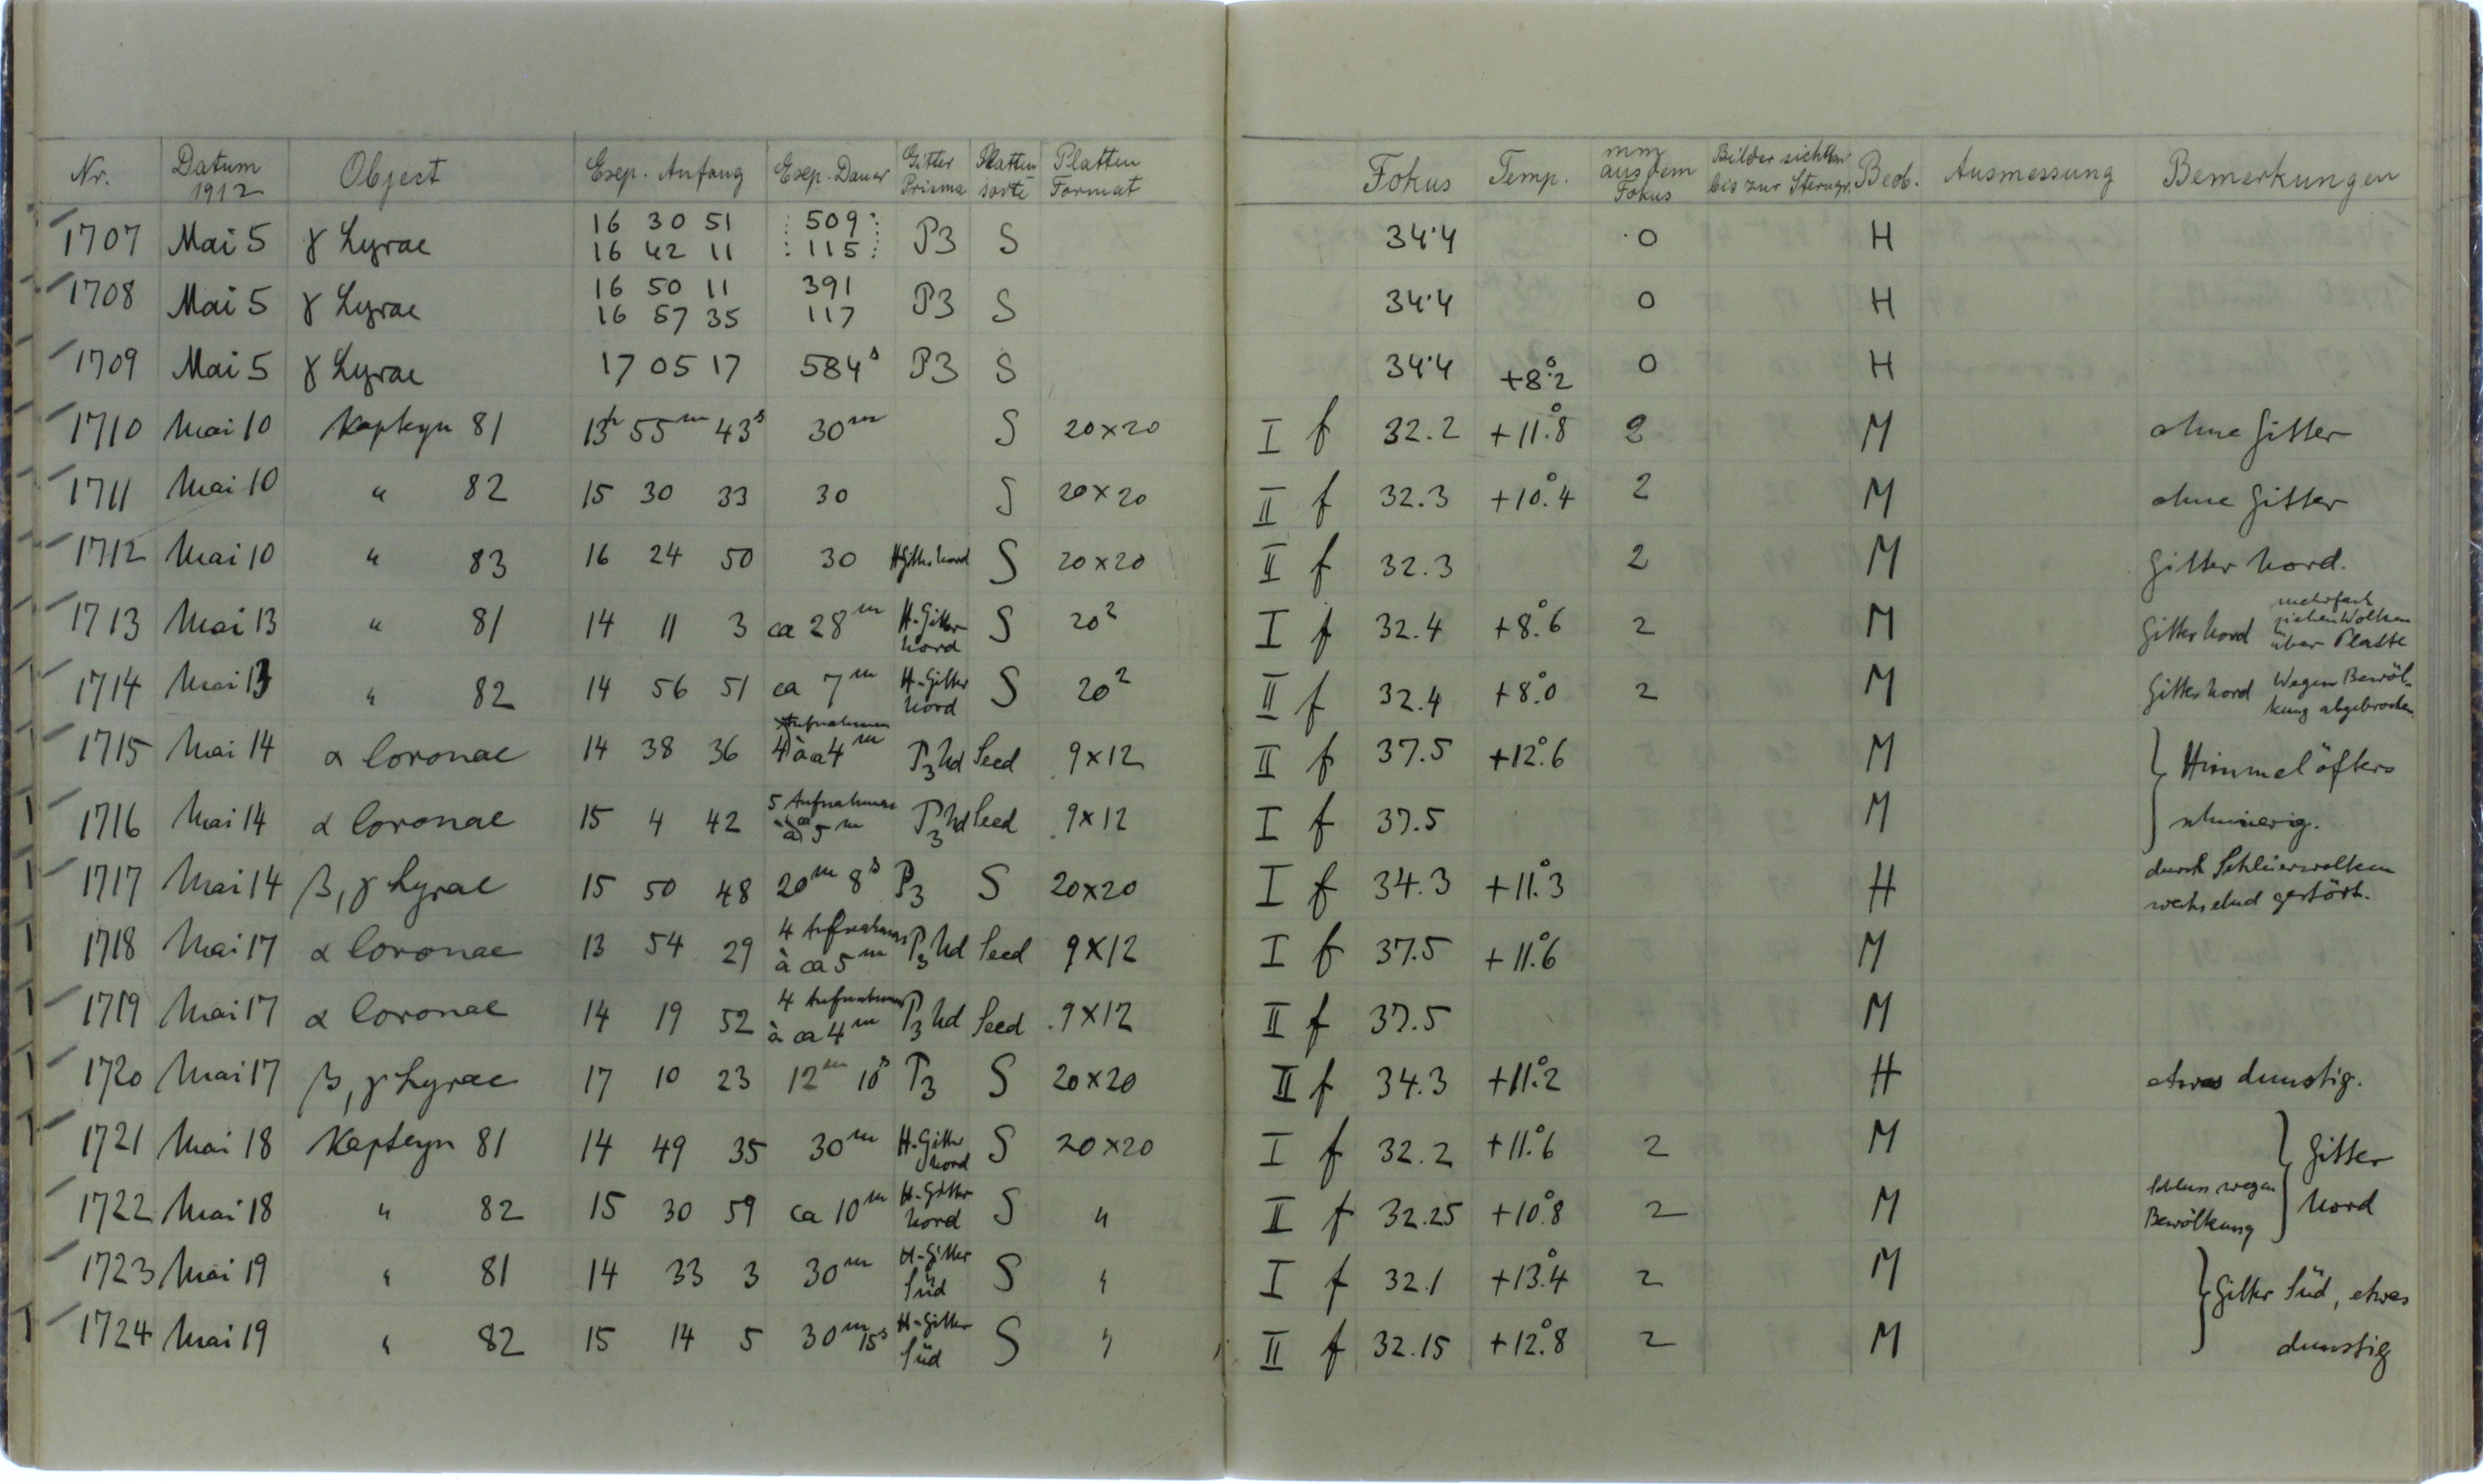 Nr. Datum 1912 Object Exp. Anfang Exp. Dauer Gitter Prisma Platten sorte Platten Format Fokus Temp. mm aus dem Fokus Bilder sichtbar bis zur Sterngr. Beob. Ausmessung Bemerkungen
1707 Mai 5 γ Lyrae 16 30 51 509 P3 S 34.4 0 H
16 42 11 115
1708 Mai 5 γ Lyrae 16 50 11 391 P3 S 34.4 0 H
16 57 35 117
1709 Mai 5 γ Lyrae 17 05 17 584s P3 S 34.4 +8°.2 0 H
1710 Mai 10 Kapteyn 81 13h 55m 43s 30m S 20×20 I f 32.2 +11°.8 2 M ohne Gitter
1711 Mai 10 " 82 15 30 33 30 S 20×20 II f 32.3 +10°.4 2 M ohne Gitter
1712 Mai 10 " 83 16 24 50 30 H Gitter Nord S 20×20 II f 32.3 2 M Gitter Nord.
1713 Mai 13 " 81 14 11 3 ca 28m H-Gitter Nord S 20² I f 32.4 +8°.6 2 M Gitter Nord mehrfach ziehen Wolken über Platte
1714 Mai 13 " 82 14 56 51 ca 7m H-Gitter Nord S 20² II f 32.4 +8°.0 2 M Gitter Nord Wegen Bewölkung abgebrochen
1715 Mai 14 α Coronae 14 38 36 4 Aufnahmen à ca 4m P3 Nd Seed 9×12 II f 37.5 +12°.6 M } Himmel öfters
1716 Mai 14 α Coronae 15 4 42 5 Aufnahmen à ca 5m P3 Nd Seed 9×12 I f 37.5 M schmierig.
1717 Mai 14 β, γ Lyrae 15 50 48 20m 8s P3 S 20×20 I f 34.3 +11°.3 H durch Schleierwolken wechselnd gestört.
1718 Mai 17 α Coronae 13 54 29 4 Aufnahmen à ca 5m P3 Nd Seed 9×12 I f 37.5 +11°.6 M
1719 Mai 17 α Coronae 14 19 52 4 Aufnahmen à ca 4m P3 Nd Seed 9×12 II f 37.5 M
1720 Mai 17 β, γ Lyrae 17 10 23 12m 10s P3 S 20×20 II f 34.3 +11°.2 H etwas dunstig.
1721 Mai 18 Kapteyn 81 14 49 35 30m H-Gitter Nord S 20×20 I f 32.2 +11°.6 2 M } Gitter
1722 Mai 18 " 82 15 30 59 ca 10m H-Gitter Nord S " II f 32.25 +10°.8 2 M Schluss wegen Bewölkung Nord
1723 Mai 19 " 81 14 33 3 30m H-Gitter Süd S " I f 32.1 +13°.4 2 M } Gitter Süd, etwas
1724 Mai 19 " 82 15 14 5 30m 15s H-Gitter Süd S " II f 32.15 +12°.8 2 M dunstig